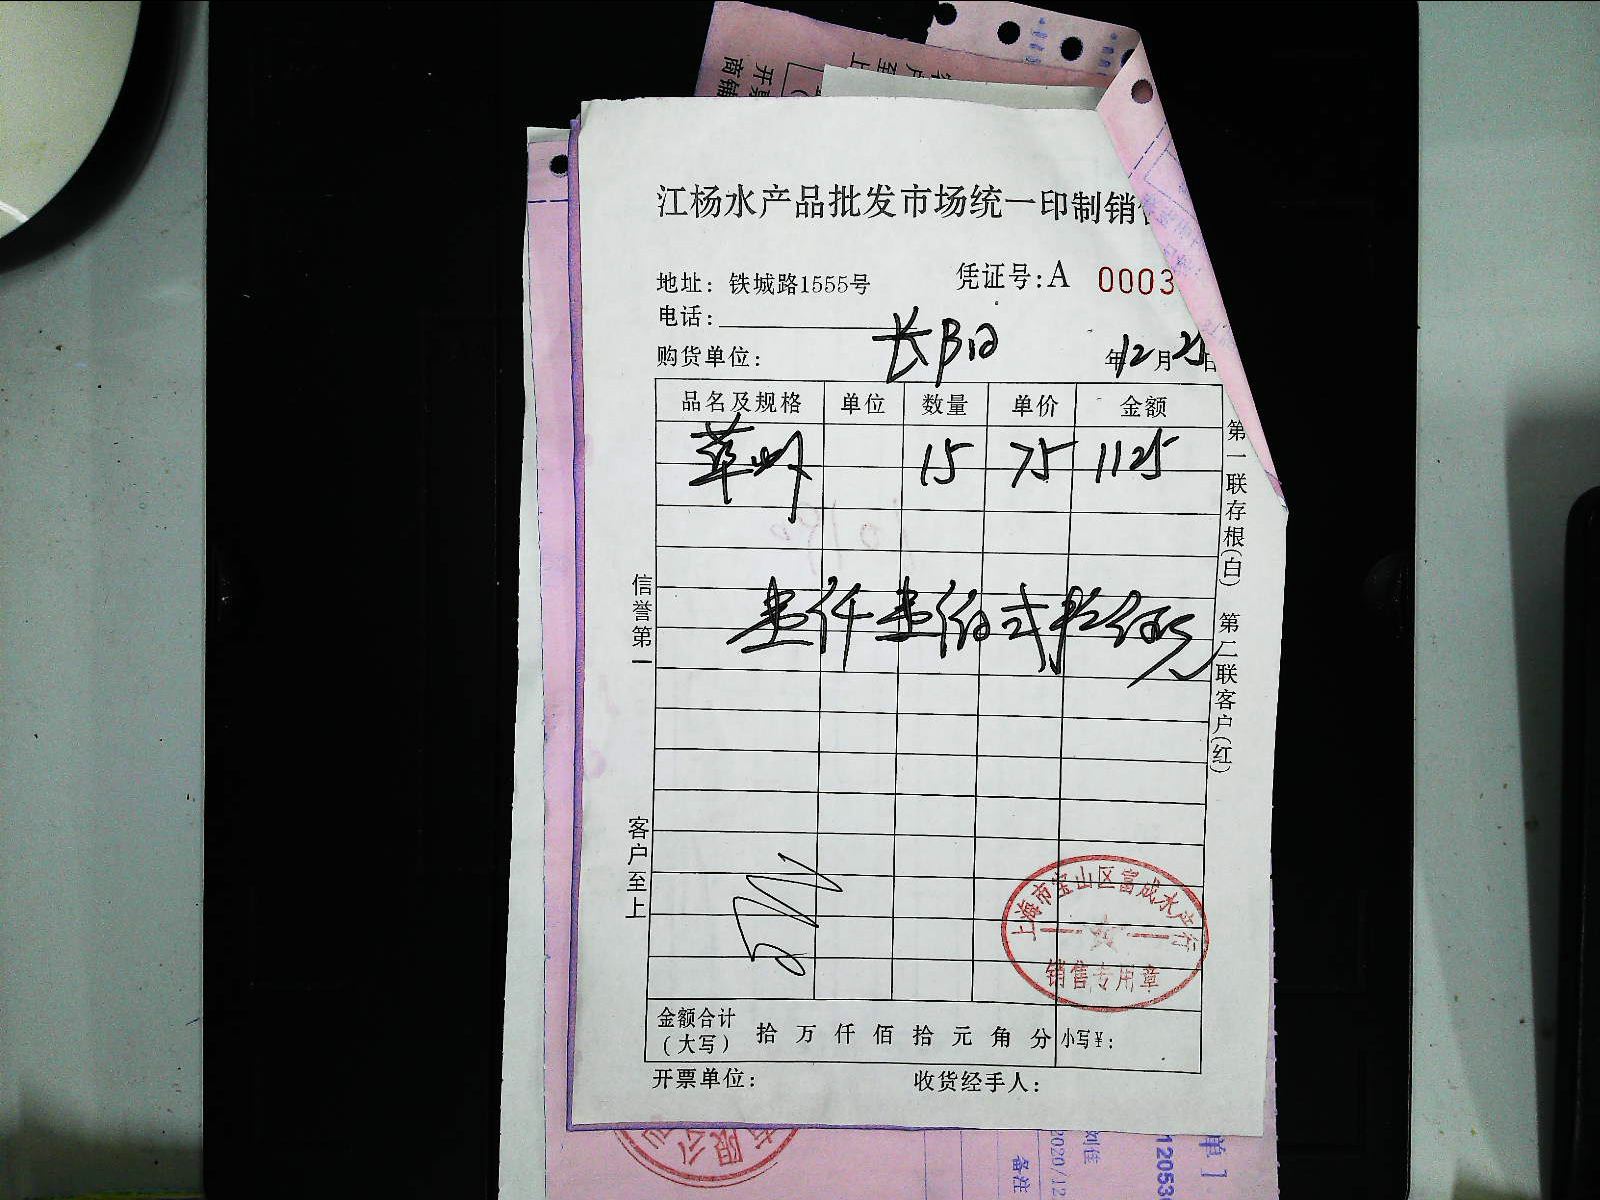 江杨水产品批发市场统一印制销
地址：铁城路1555号
凭证号:A 0003
电话:
购货单位: 长阳
年12月25日
品名及规格 单位 数量 单价 金额
15 75 1125
壹仟壹佰弍拾伍元
信誉第一
客户至上
第一联存根(白) 第二联客户(红)
上海市宝山区富成水产行
销售专用章
金额合计
(大写) 拾 万 仟 佰 拾 元 角 分 小写¥:
开票单位: 收货经手人:
商铺
开票
客户至上
有限公司
刘佳
2020/12
备注
单]
12053